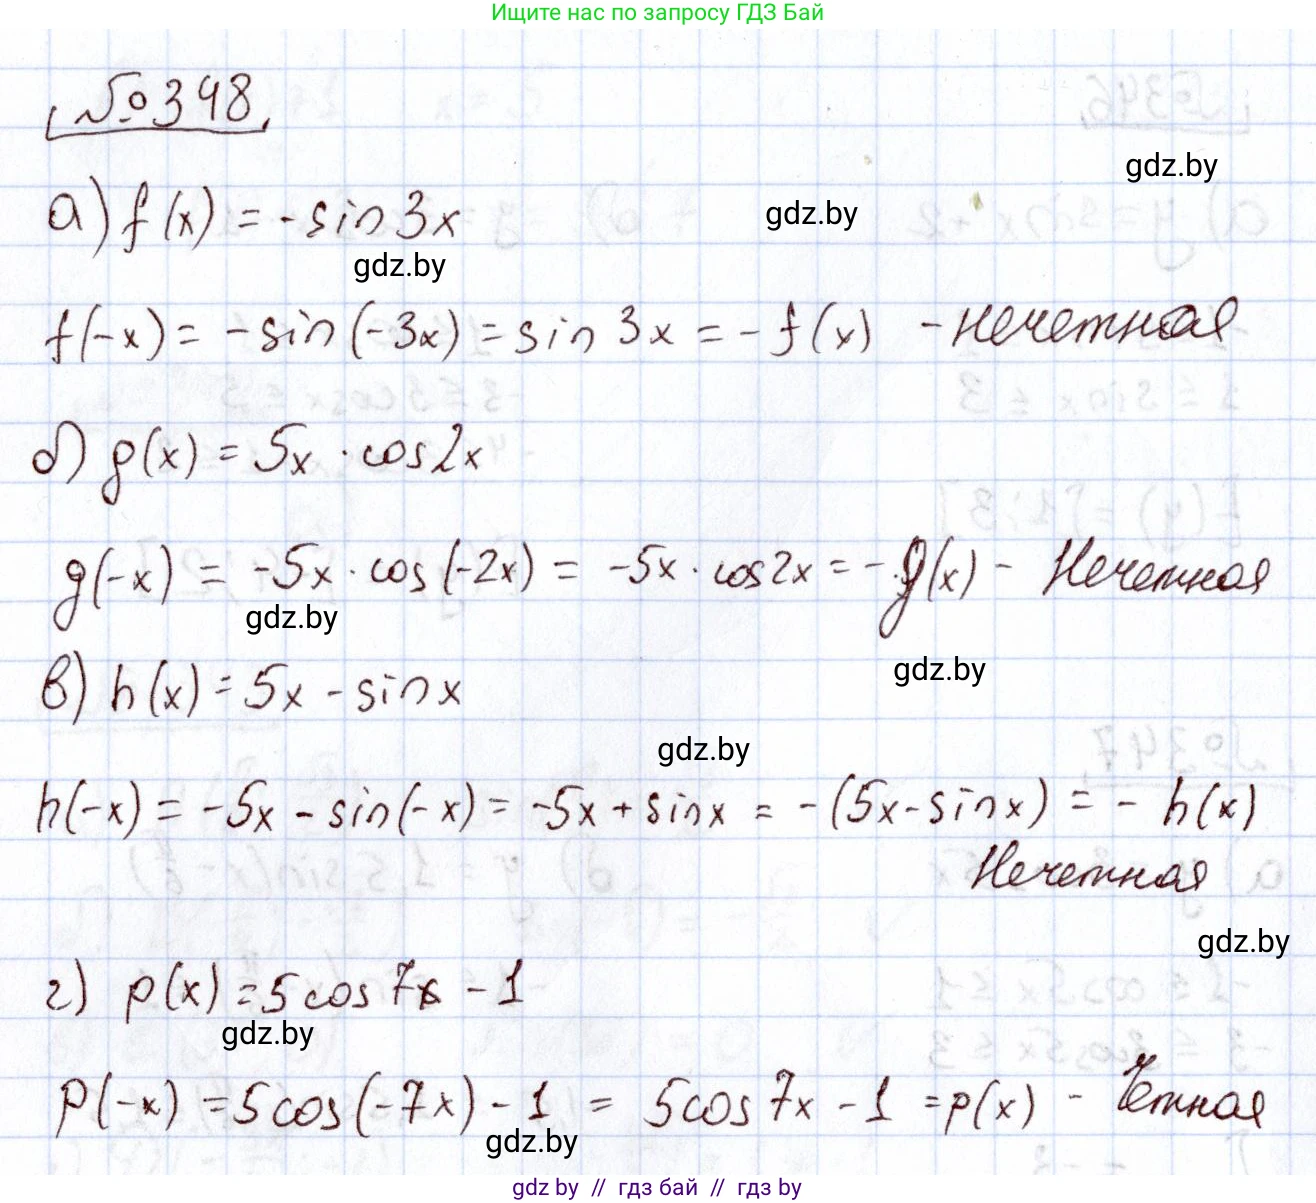 Ищите нас по запросу ГДЗ Бай
№348
gdz.by
а) f(x) = -sin3x
gdz.by
gdz.by
f(-x) = -sin(-3x) = sin 3x = -f(x) - нечетная
б) g(x) = 5x · cos2x
g(-x) = -5x · cos(-2x) = -5x · cos2x = -g(x) - Нечетная
gdz.by
gdz.by
в) h(x) = 5x - sinx
gdz.by
h(-x) = -5x - sin(-x) = -5x + sinx = -(5x-sinx) = - h(x)
Нечетная
gdz.by
г) p(x) = 5cos7x - 1
gdz.by
p(-x) = 5cos(-7x) - 1 = 5cos7x - 1 = p(x) - Четная
gdz.by
gdz by // гдз бай // гдз by